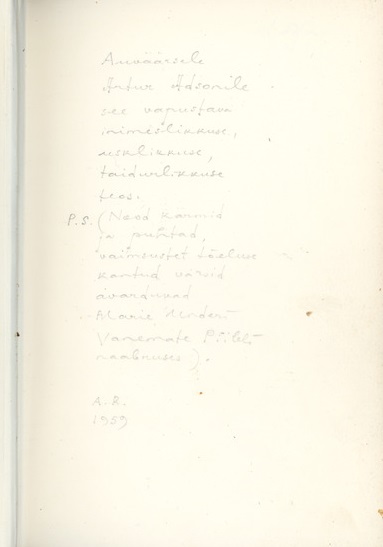 Auväärsele
Artur Adsonile
see vapustava
inimeslikkuse,
usklikkuse,
taidurlikkuse
teos.
P.S. (Need karmid
ja puhtad,
vaimsustet tõeluse
kantud värsid
avarduvad
Marie Underi
Vanemate Piibli
naabruses).
A.R.
1959